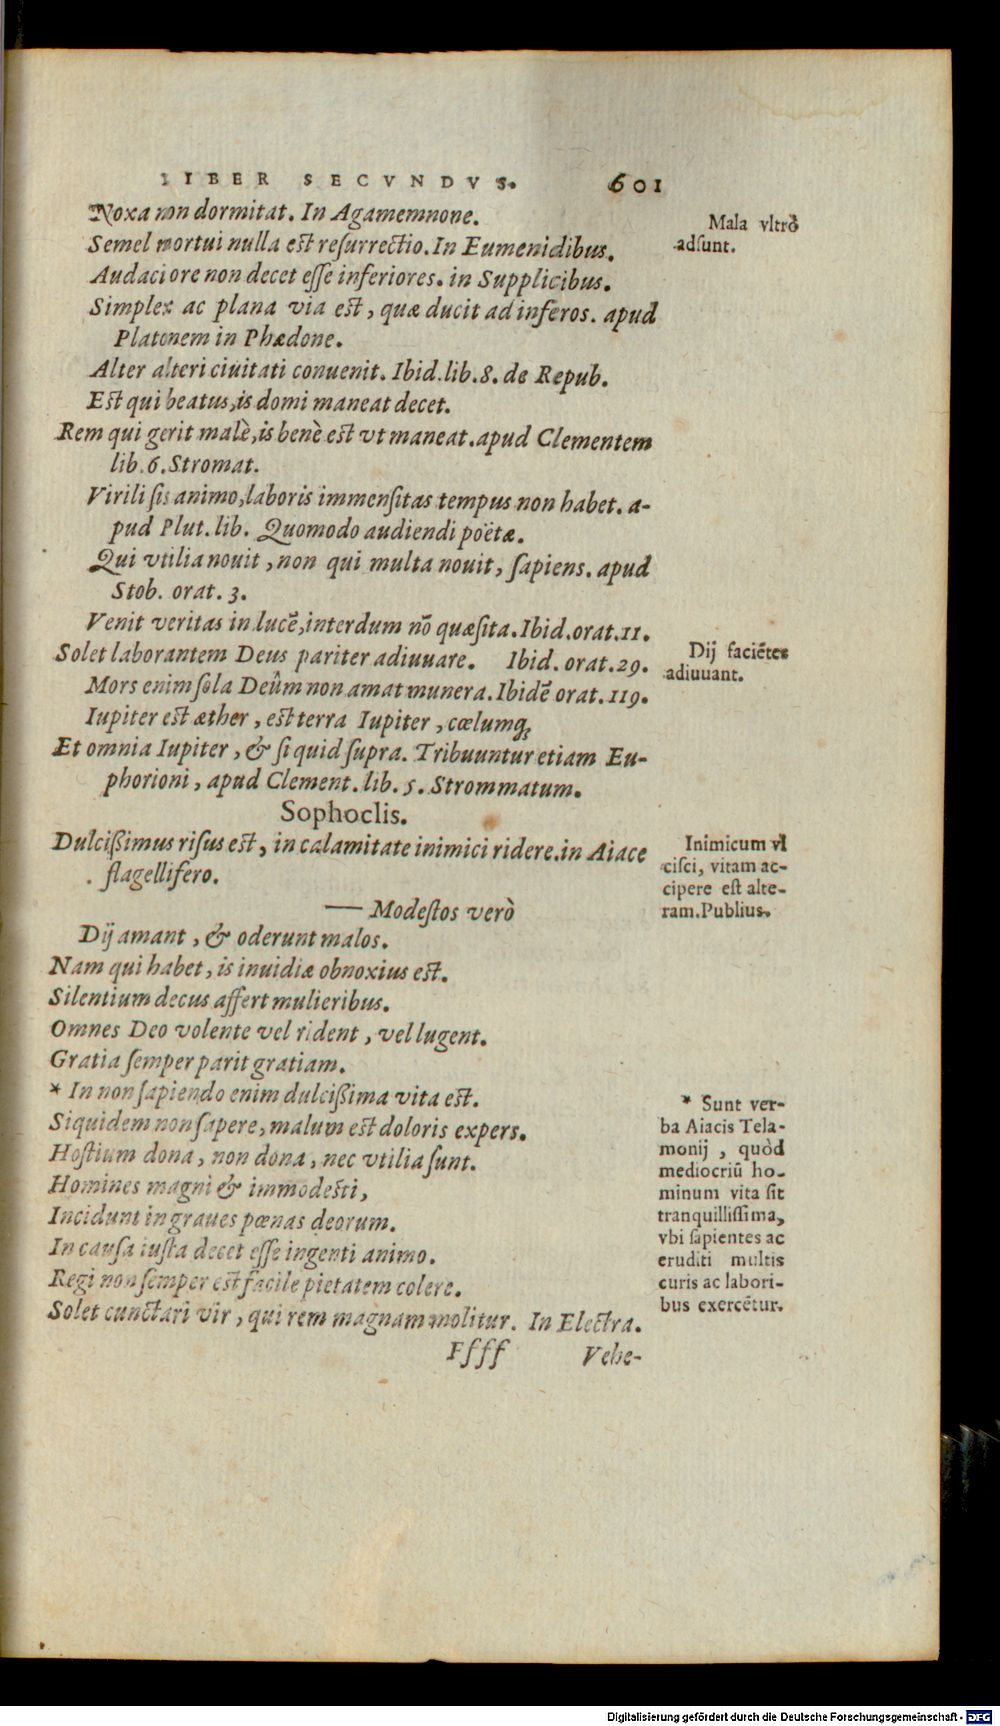 LIBER SECVNDVS. 601
Noxa non dormitat. In Agamemnone.
Semel mortui nulla est resurrectio. In Eumenidibus.
Audaciore non decet esse inferiores. in Supplicibus.
Simplex ac plana via est, quæ ducit ad inferos. apud
Platonem in Phædone.
Alter alteri ciuitati conuenit. Ibid. lib. 8. de Repub.
Est qui beatus, is domi maneat decet.
Rem qui gerit malè, is benè est vt maneat. apud Clementem
lib. 6. Stromat.
Virili sis animo, laboris immensitas tempus non habet. a-
pud Plut. lib. Quomodo audiendi poëtæ.
Qui vtilia nouit, non qui multa nouit, sapiens. apud
Stob. orat. 3.
Venit veritas in lucē, interdum nō quæsita. Ibid. orat. 11.
Solet laborantem Deus pariter adiuuare. Ibid. orat. 29.
Mors enim sola Deûm non amat munera. Ibidē orat. 119.
Iupiter est æther, est terra Iupiter, cœlumq́;
Et omnia Iupiter, & si quid supra. Tribuuntur etiam Eu-
phorioni, apud Clement. lib. 5. Strommatum.
Sophoclis.
Dulcißimus risus est, in calamitate inimici ridere. in Aiace
flagellifero.
— Modestos verò
Dij amant, & oderunt malos.
Nam qui habet, is inuidiæ obnoxius est.
Silentium decus affert mulieribus.
Omnes Deo volente vel rident, vel lugent.
Gratia semper parit gratiam.
* In non sapiendo enim dulcißima vita est.
Siquidem non sapere, malum est doloris expers.
Hostium dona, non dona, nec vtilia sunt.
Homines magni & immodesti,
Incidunt in graues pœnas deorum.
In causa iusta decet esse ingenti animo.
Regi non semper est facile pietatem colere.
Solet cunctari vir, qui rem magnam molitur. In Electra.
Ffff Vehe-
Mala vltrò
adsunt.
Dij faciētes
adiuuant.
Inimicum vl
cisci, vitam ac-
cipere est alte-
ram. Publius.
* Sunt ver-
ba Aiacis Tela-
monij, quòd
mediocriū ho-
minum vita sit
tranquillissima,
vbi sapientes ac
eruditi multis
curis ac labori-
bus exercētur.
Digitalisierung gefördert durch die Deutsche Forschungsgemeinschaft - DFG